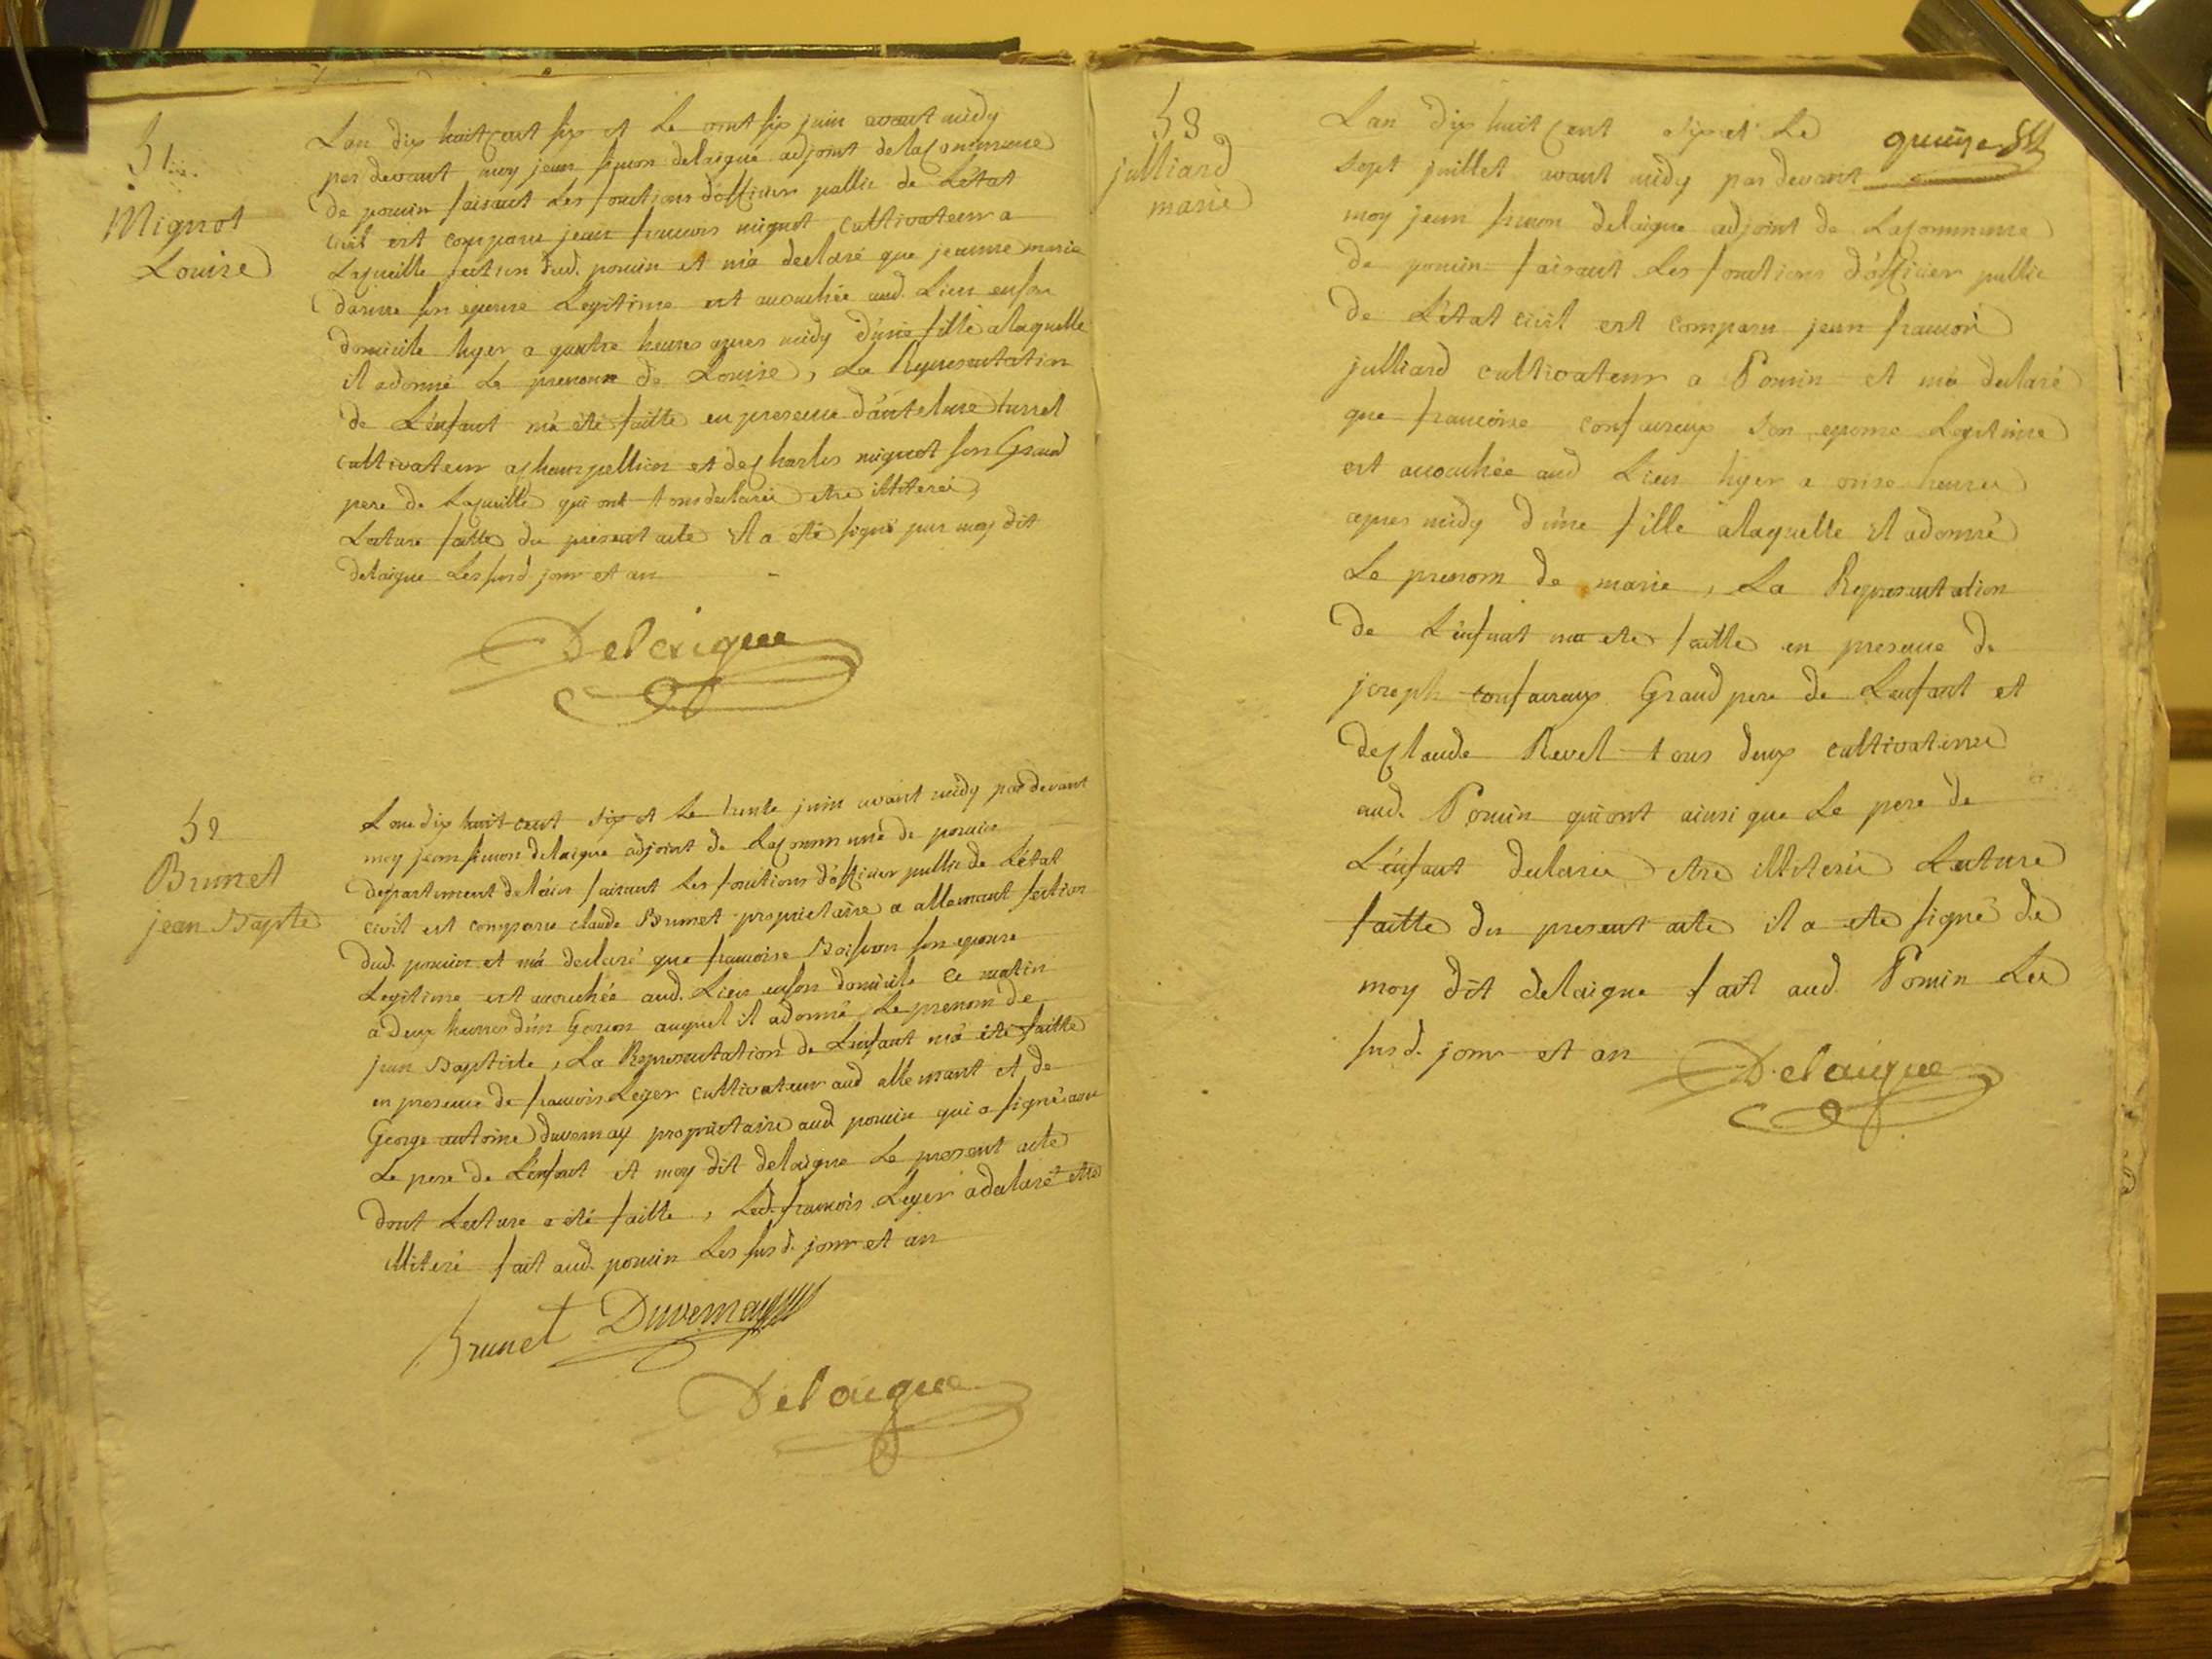 51.
Mignot
Louise
Lan dix huit cent six et Le vint six juin avant midy
par devant moy jean simon delaigue adjoint de la Commune
de poncin faisant Les fonctions d'officier public de L'état
civil est comparu jean francois mignot cultivateur a
Lacueille section dud. poncin et m'a declaré que jeanne marie
son epouse Legitime est acouchée aud. Lieu en son
domicile hyer a quatre heures apres midy d'une fille a laquelle
il a donné Le prenom de Louise, La Representation
de L'enfant m'a été faitte en presence d'antelme turrel
cultivateur a et de Charles mignot son Grand
pere de Lacueille qui ont tous declaréz etre illiterez,
Lecture faitte du present acte il a été signé par moy dit
delaigue Les susd. jour et an
Delaigue
52
Brunet
jean Bapte
L'an dix huit cent six et Le trente juin avant midy par devant
moy jean simon delaigue adjoint de La Commune de poncin
departement de l'ain faisant Les fonctions d'officier public de L'état
civil est comparu claude Brunet proprietaire a allemant section
dud. poncin et m'a declaré que francoise son epouse
Legitime est acouchée aud. Lieu en son domicile ce matin
a deux heures d'un Garcon auquel il a donné Le prenom de
jean Baptiste, La Representation de L'enfant m'a été faitte
en presence de francois Leger cultivateur aud. allemant et de
George antoine duvernay proprietaire aud. poncin qui a signé avec
Le pere de L'enfant et moy dit delaigue Le present acte
dont Lecture a été faitte, Led. francois Leger a declaré etre
illiteré fait aud. poncin Les susd. jour et an
Brunet Duvernay
Delaigue
quinze
53
julliard
marie
Lan dix huit Cent six et Le
sept juillet avant midy par devant
moy jean simon delaigue adjoint de La Commune
de poncin faisant Les fonctions d'officier public
de L'état civil est comparu jean francois
julliard cultivateur a Poncin et m'a declaré
que francoise confavreux son epouse Legitime
est acouchée aud. Lieu hyer a onze heures
apres midy d'une fille a laquelle il a donné
Le prenom de marie, La Representation
de L'enfant m'a été faitte en presence de
joseph confavreux Grand pere de L'enfant et
de Claude Revel tous deux cultivateurs
aud. Poncin qui ont ainsi que Le pere de
L'enfant declarez etre illiterez Lecture
faitte du present acte il a été signé de
moy dit delaigue fait aud. Poncin Les
susd. jour et an
Delaigue